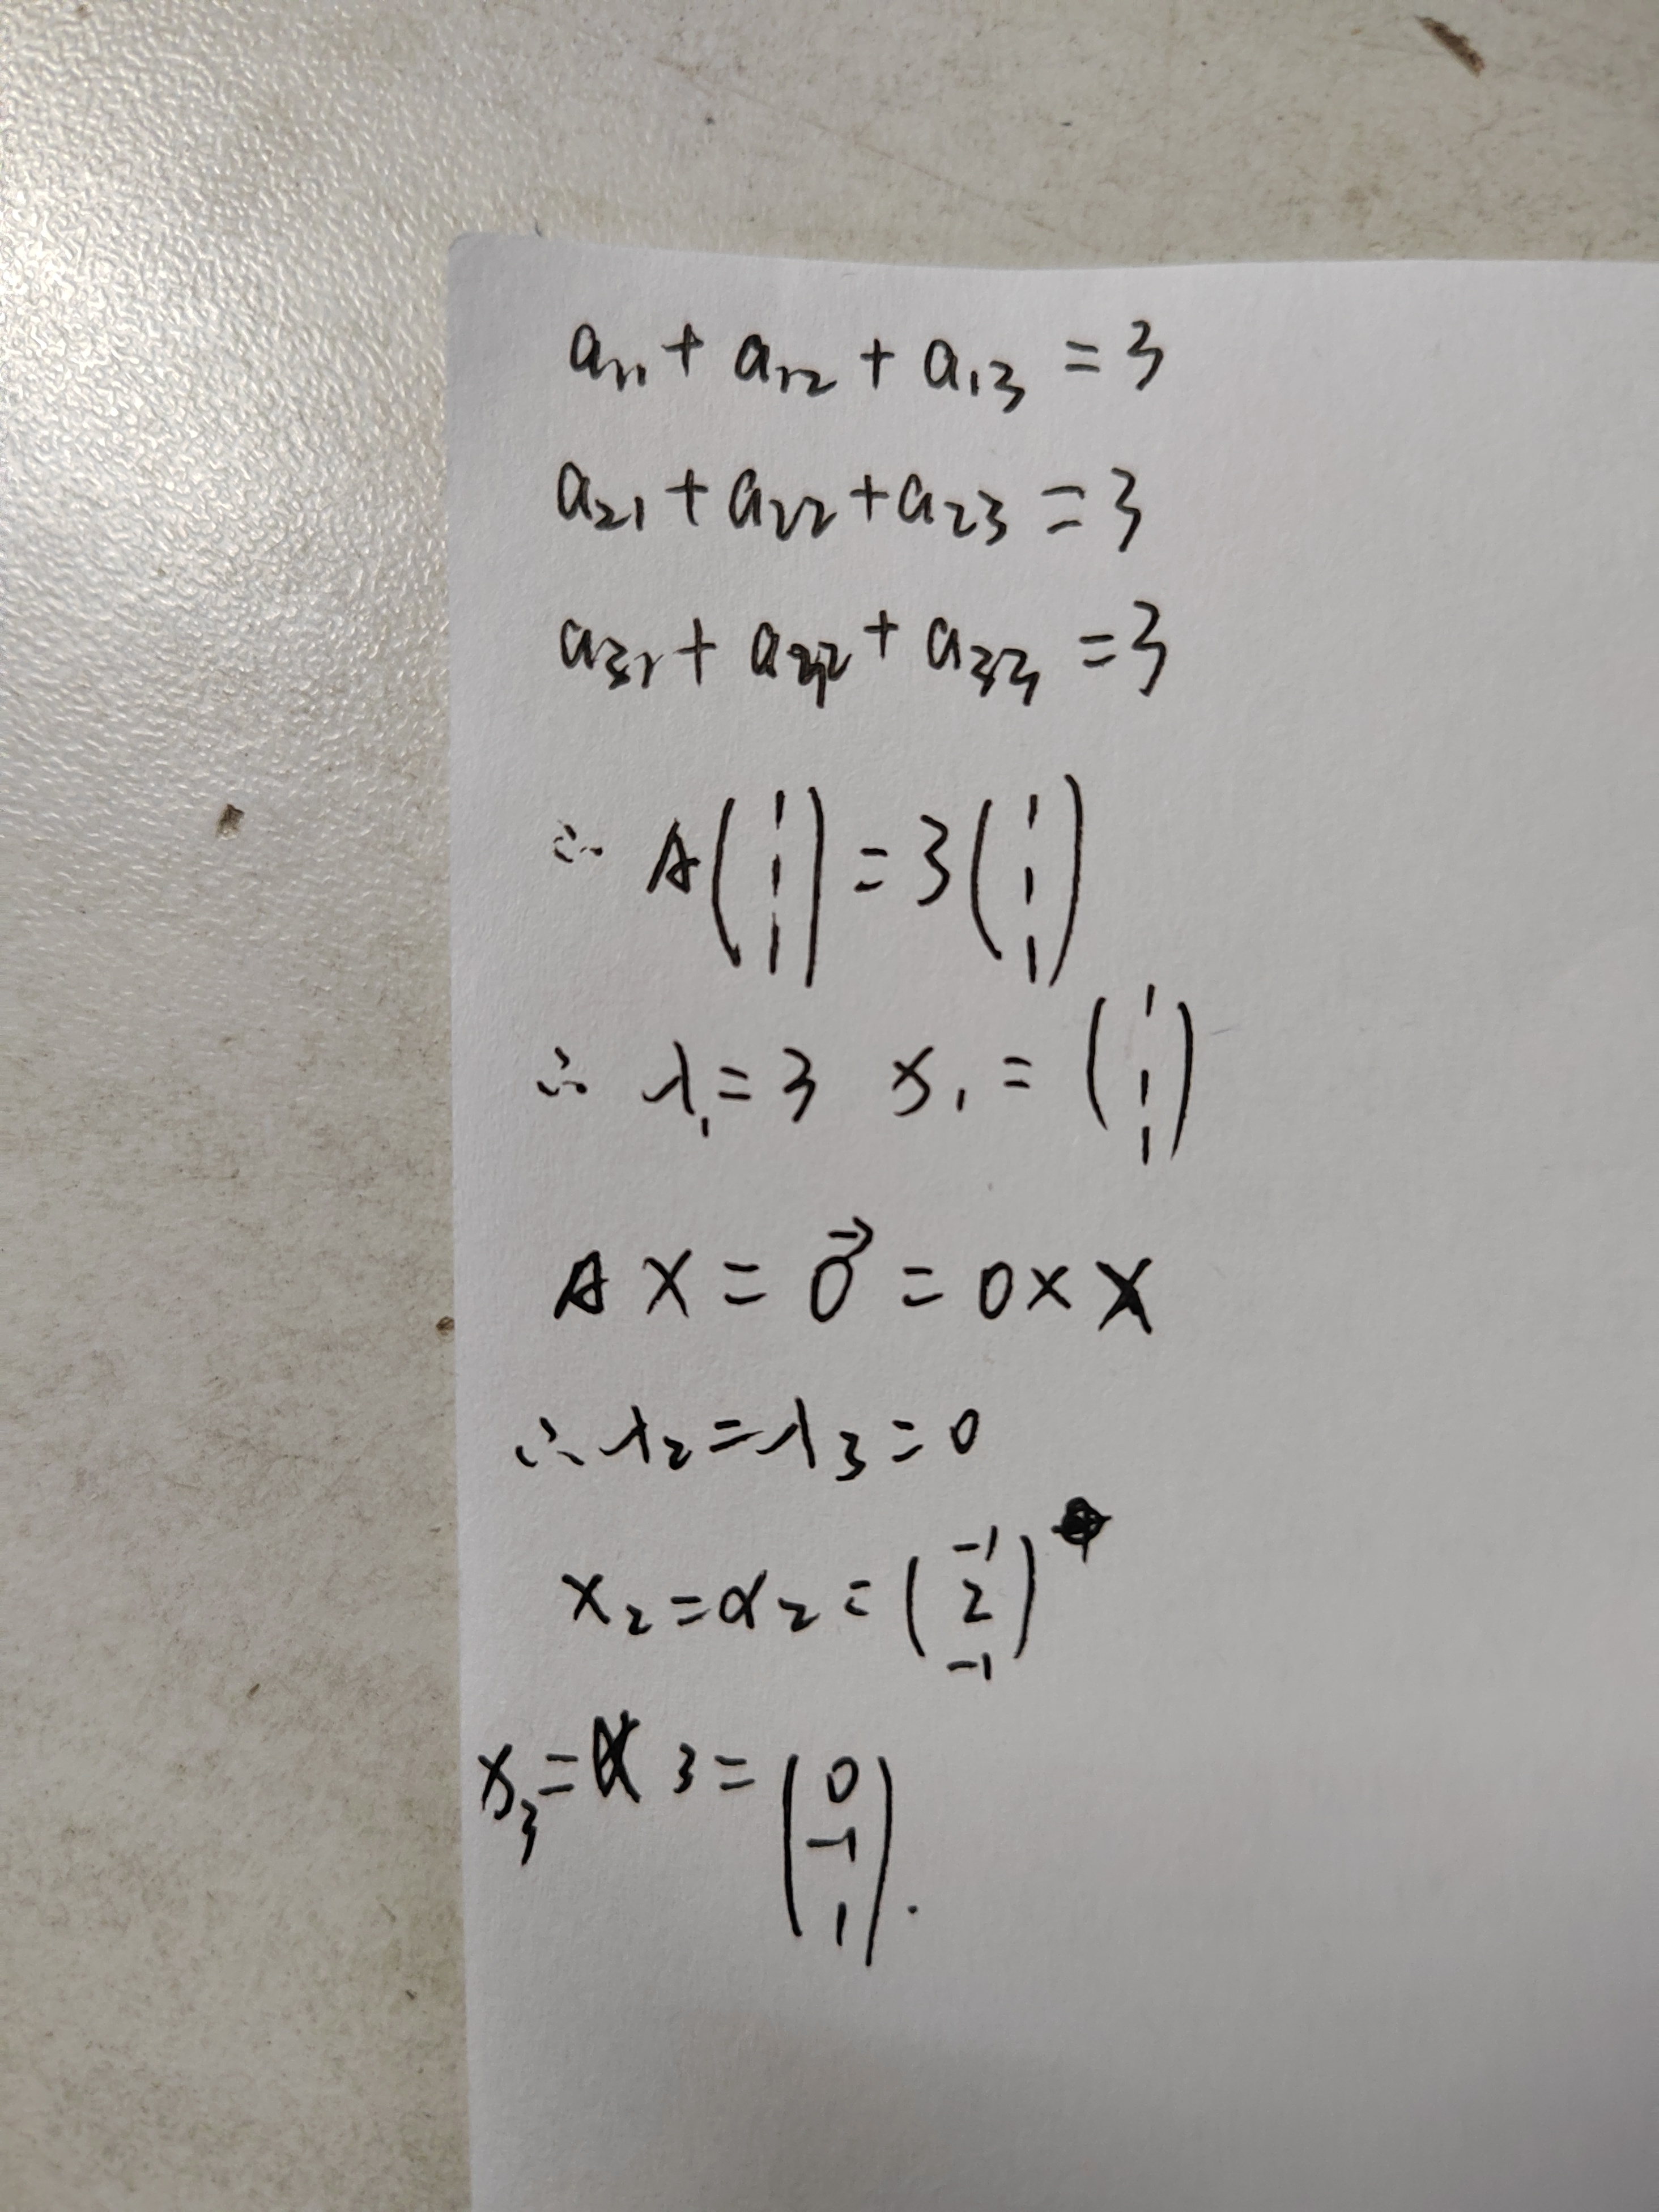 a₁₁ + a₁₂ + a₁₃ = 3
a₂₁ + a₂₂ + a₂₃ = 3
a₃₁ + a₃₂ + a₃₃ = 3
∴ A(1 1 1) = 3(1 1 1)
∴ λ₁ = 3 x₁ = (1 1 1)
A X = 0⃗ = 0 × X
∴ λ₂ = λ₃ = 0
x₂ = α₂ = (-1 2 -1)
x₃ = α₃ = (0 -1 1).